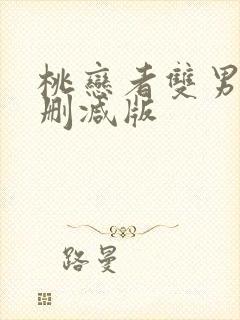 桃戀者雙男
刪減版
路曼